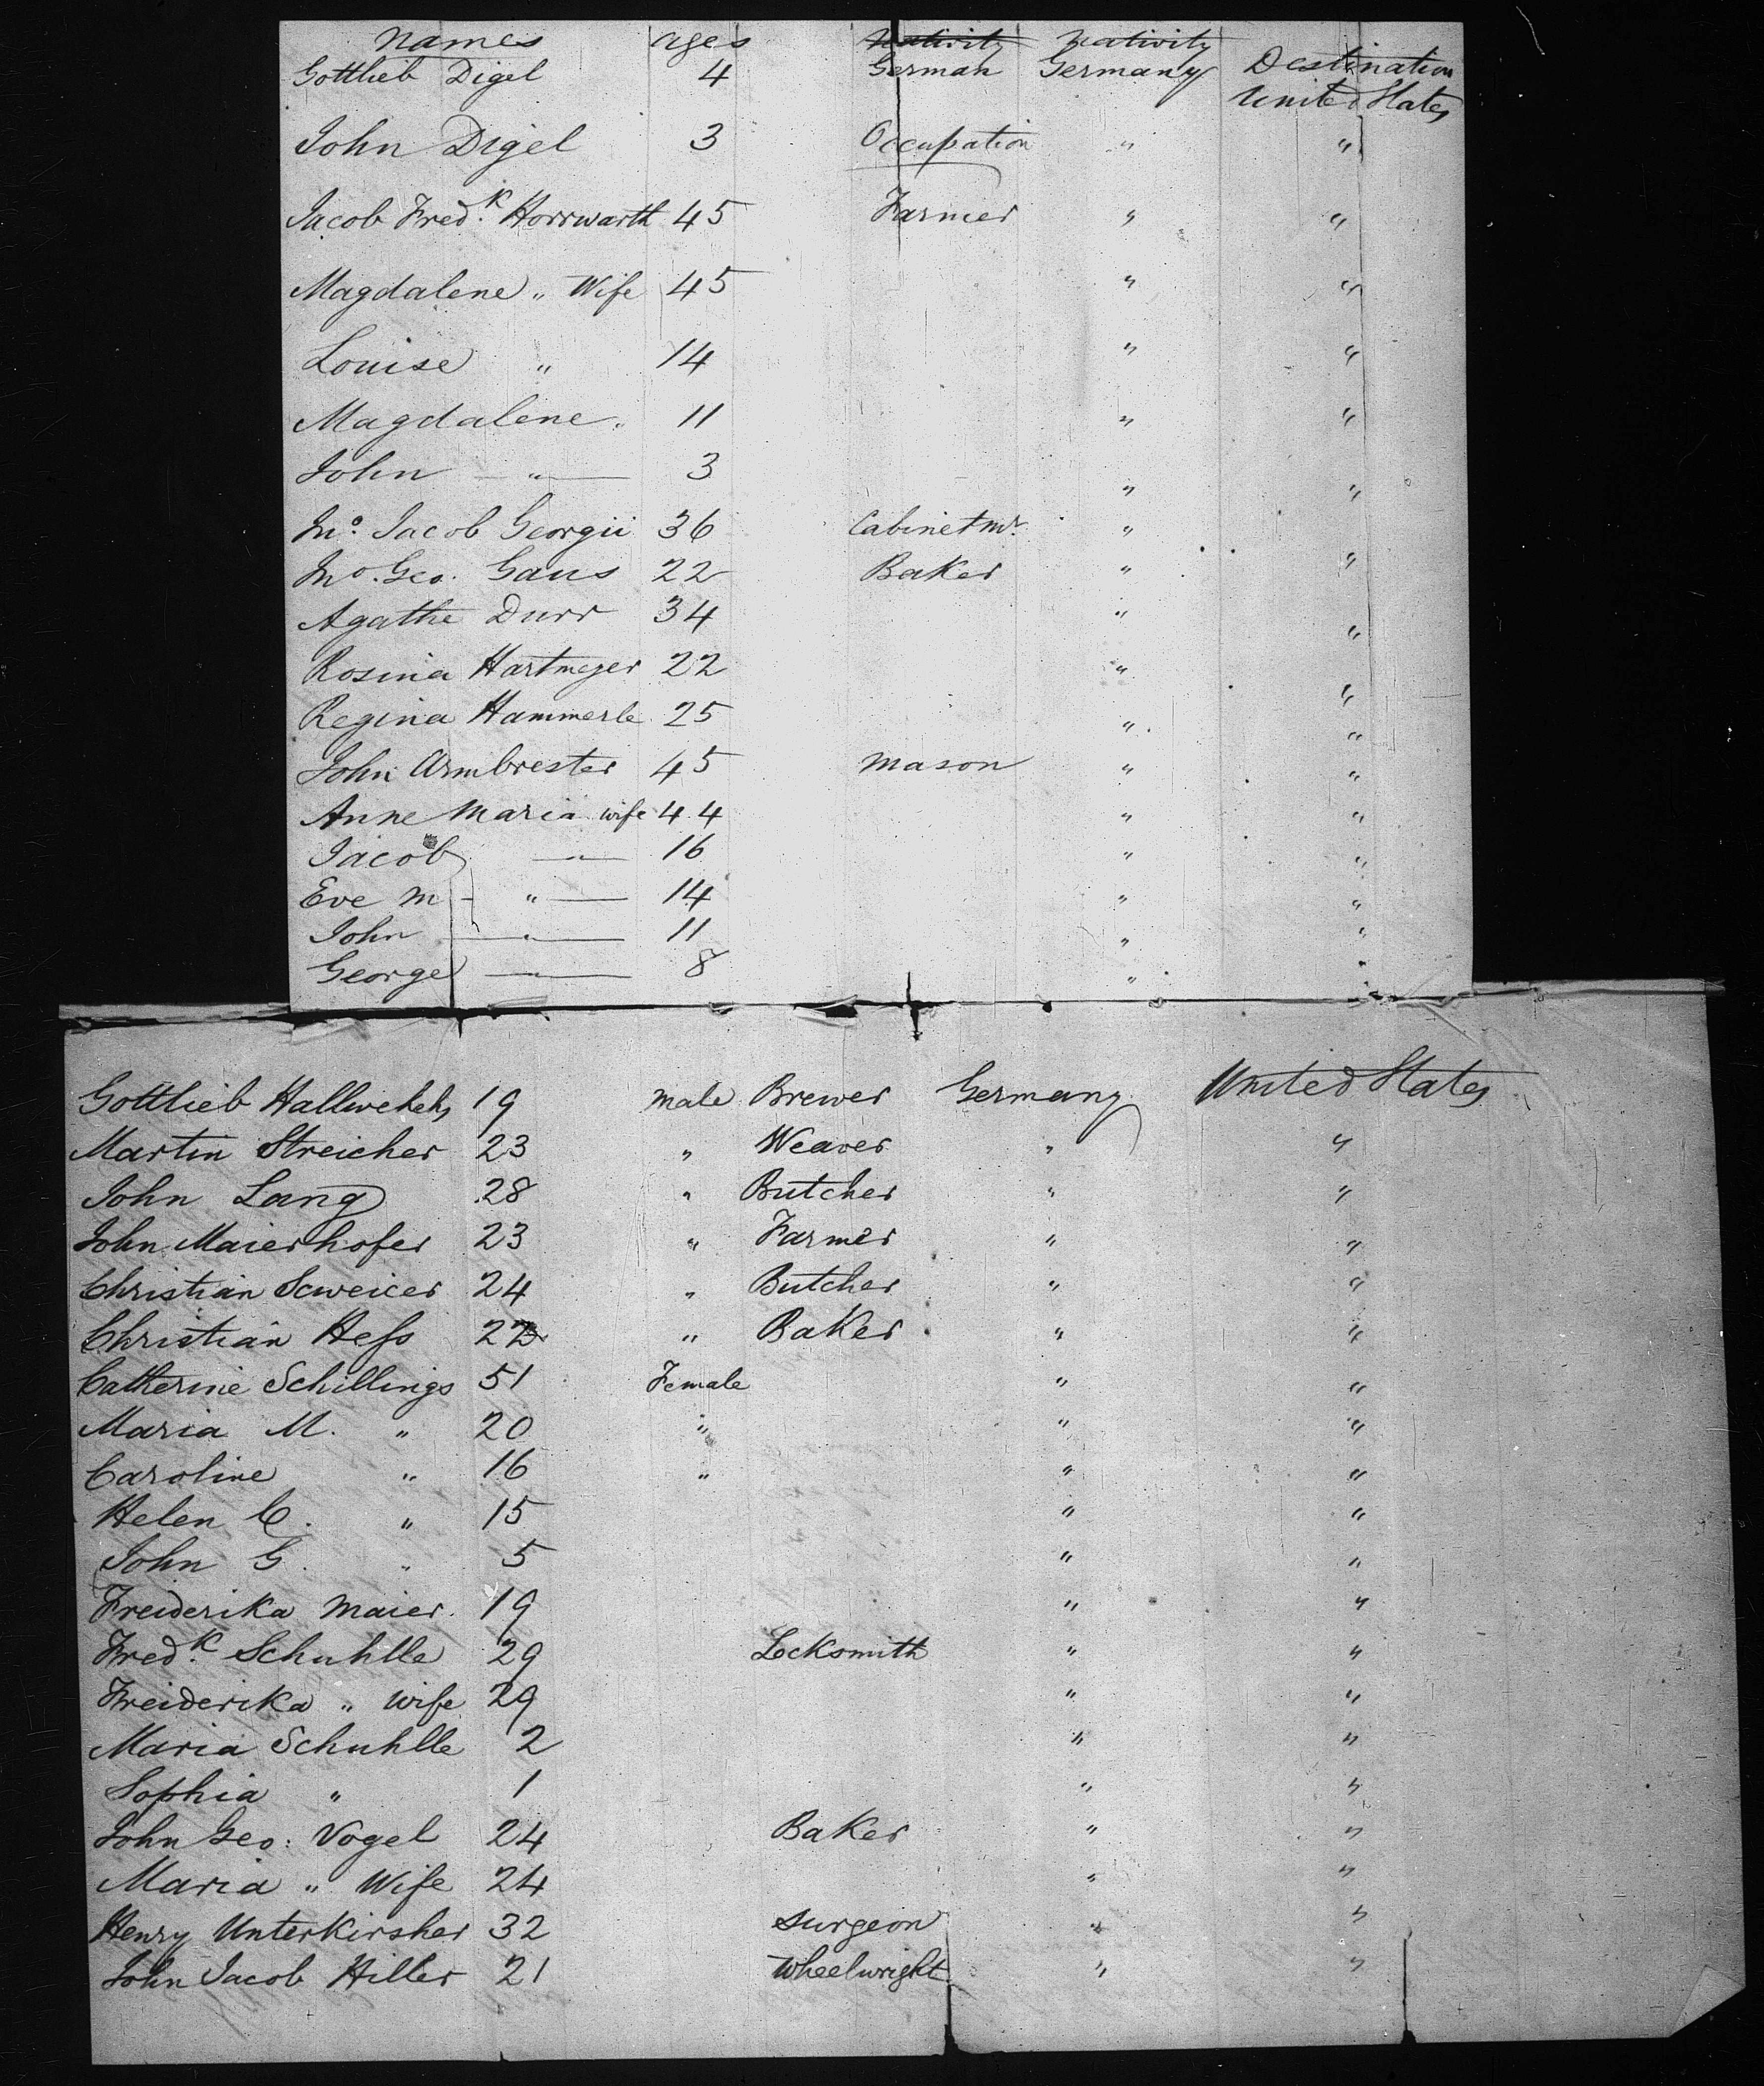 Names ages Nativity Nativity Destination
Gottlieb Digel 4 German Germany United States
John Digel 3 Occupation " "
Jacob Fred.k Horrwarth 45 Farmer " "
Magdalene " Wife 45 " "
Louise " 14 " "
Magdalene " 11 " "
John " 3 " "
Jno. Jacob Georgii 36 Cabinet mr. "
Jno. Geo. Gaus 22 Baker " "
Agathe Durr 34 " "
Rosina Hartmeyer 22 " "
Regina Hammerle 25 " "
John Armbrester 45 Mason " "
Anne Maria wife 44 " "
Jacob " 16 " "
Eve M " 14 " "
John " 11 " "
George " 8 " "
Gottlieb 19 male Brewer Germany United States
Martin Streicher 23 " Weaver " "
John Lang 28 " Butcher " "
John Maierhofer 23 " Farmer " "
Christian Scweicer 24 " Butcher " "
Christian Hess 22 " Baker " "
Catherine Schillings 51 Female " "
Maria M. " 20 " " "
Caroline " 16 " " "
Helen C. " 15 " "
John G. " 5 " "
Freiderika Maier 19 " "
Fred.k Schuhlle 29 Locksmith " "
Freiderika " wife 29 " "
Maria Schuhlle 2 " "
Sophia " 1 " "
John Geo. Vogel 24 Baker " "
Maria " Wife 24 " "
Henry Unterkirsher 32 Surgeon " "
John Jacob Hiller 21 Wheelwright " "